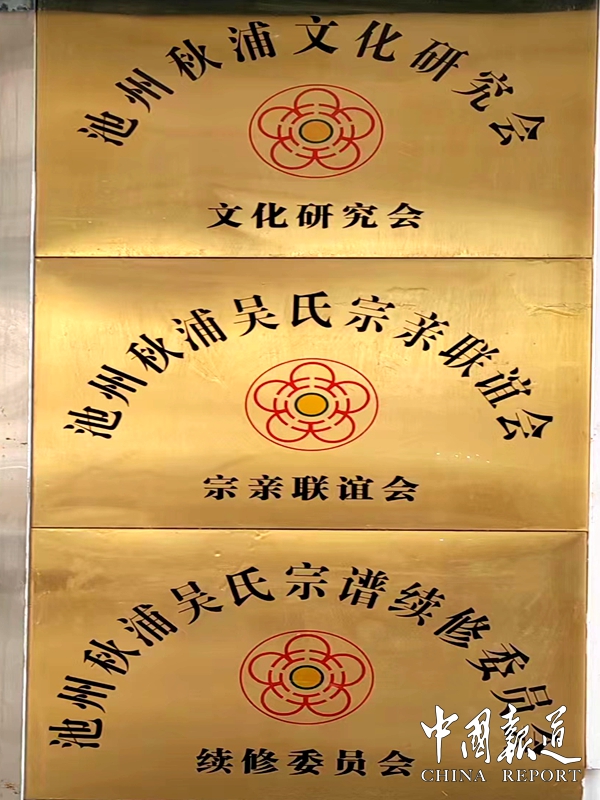 池州秋浦文化研究会
文化研究会
池州秋浦吴氏宗亲联谊会
宗亲联谊会
池州秋浦吴氏宗谱续修委员会
续修委员会
中国报道
CHINA REPORT